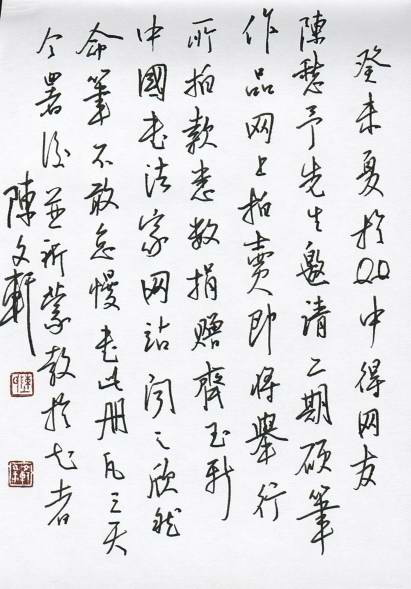 癸未夏於QQ中得网友
陳慧予先生邀請二期硕筆
作品网上拍賣即将舉行
所拍款悉数捐赠齊玉新
中國书法家网站闻之欣然
命筆不敢怠慢书此册凡三天
今署後並祈蒙教於方者
陳文軒